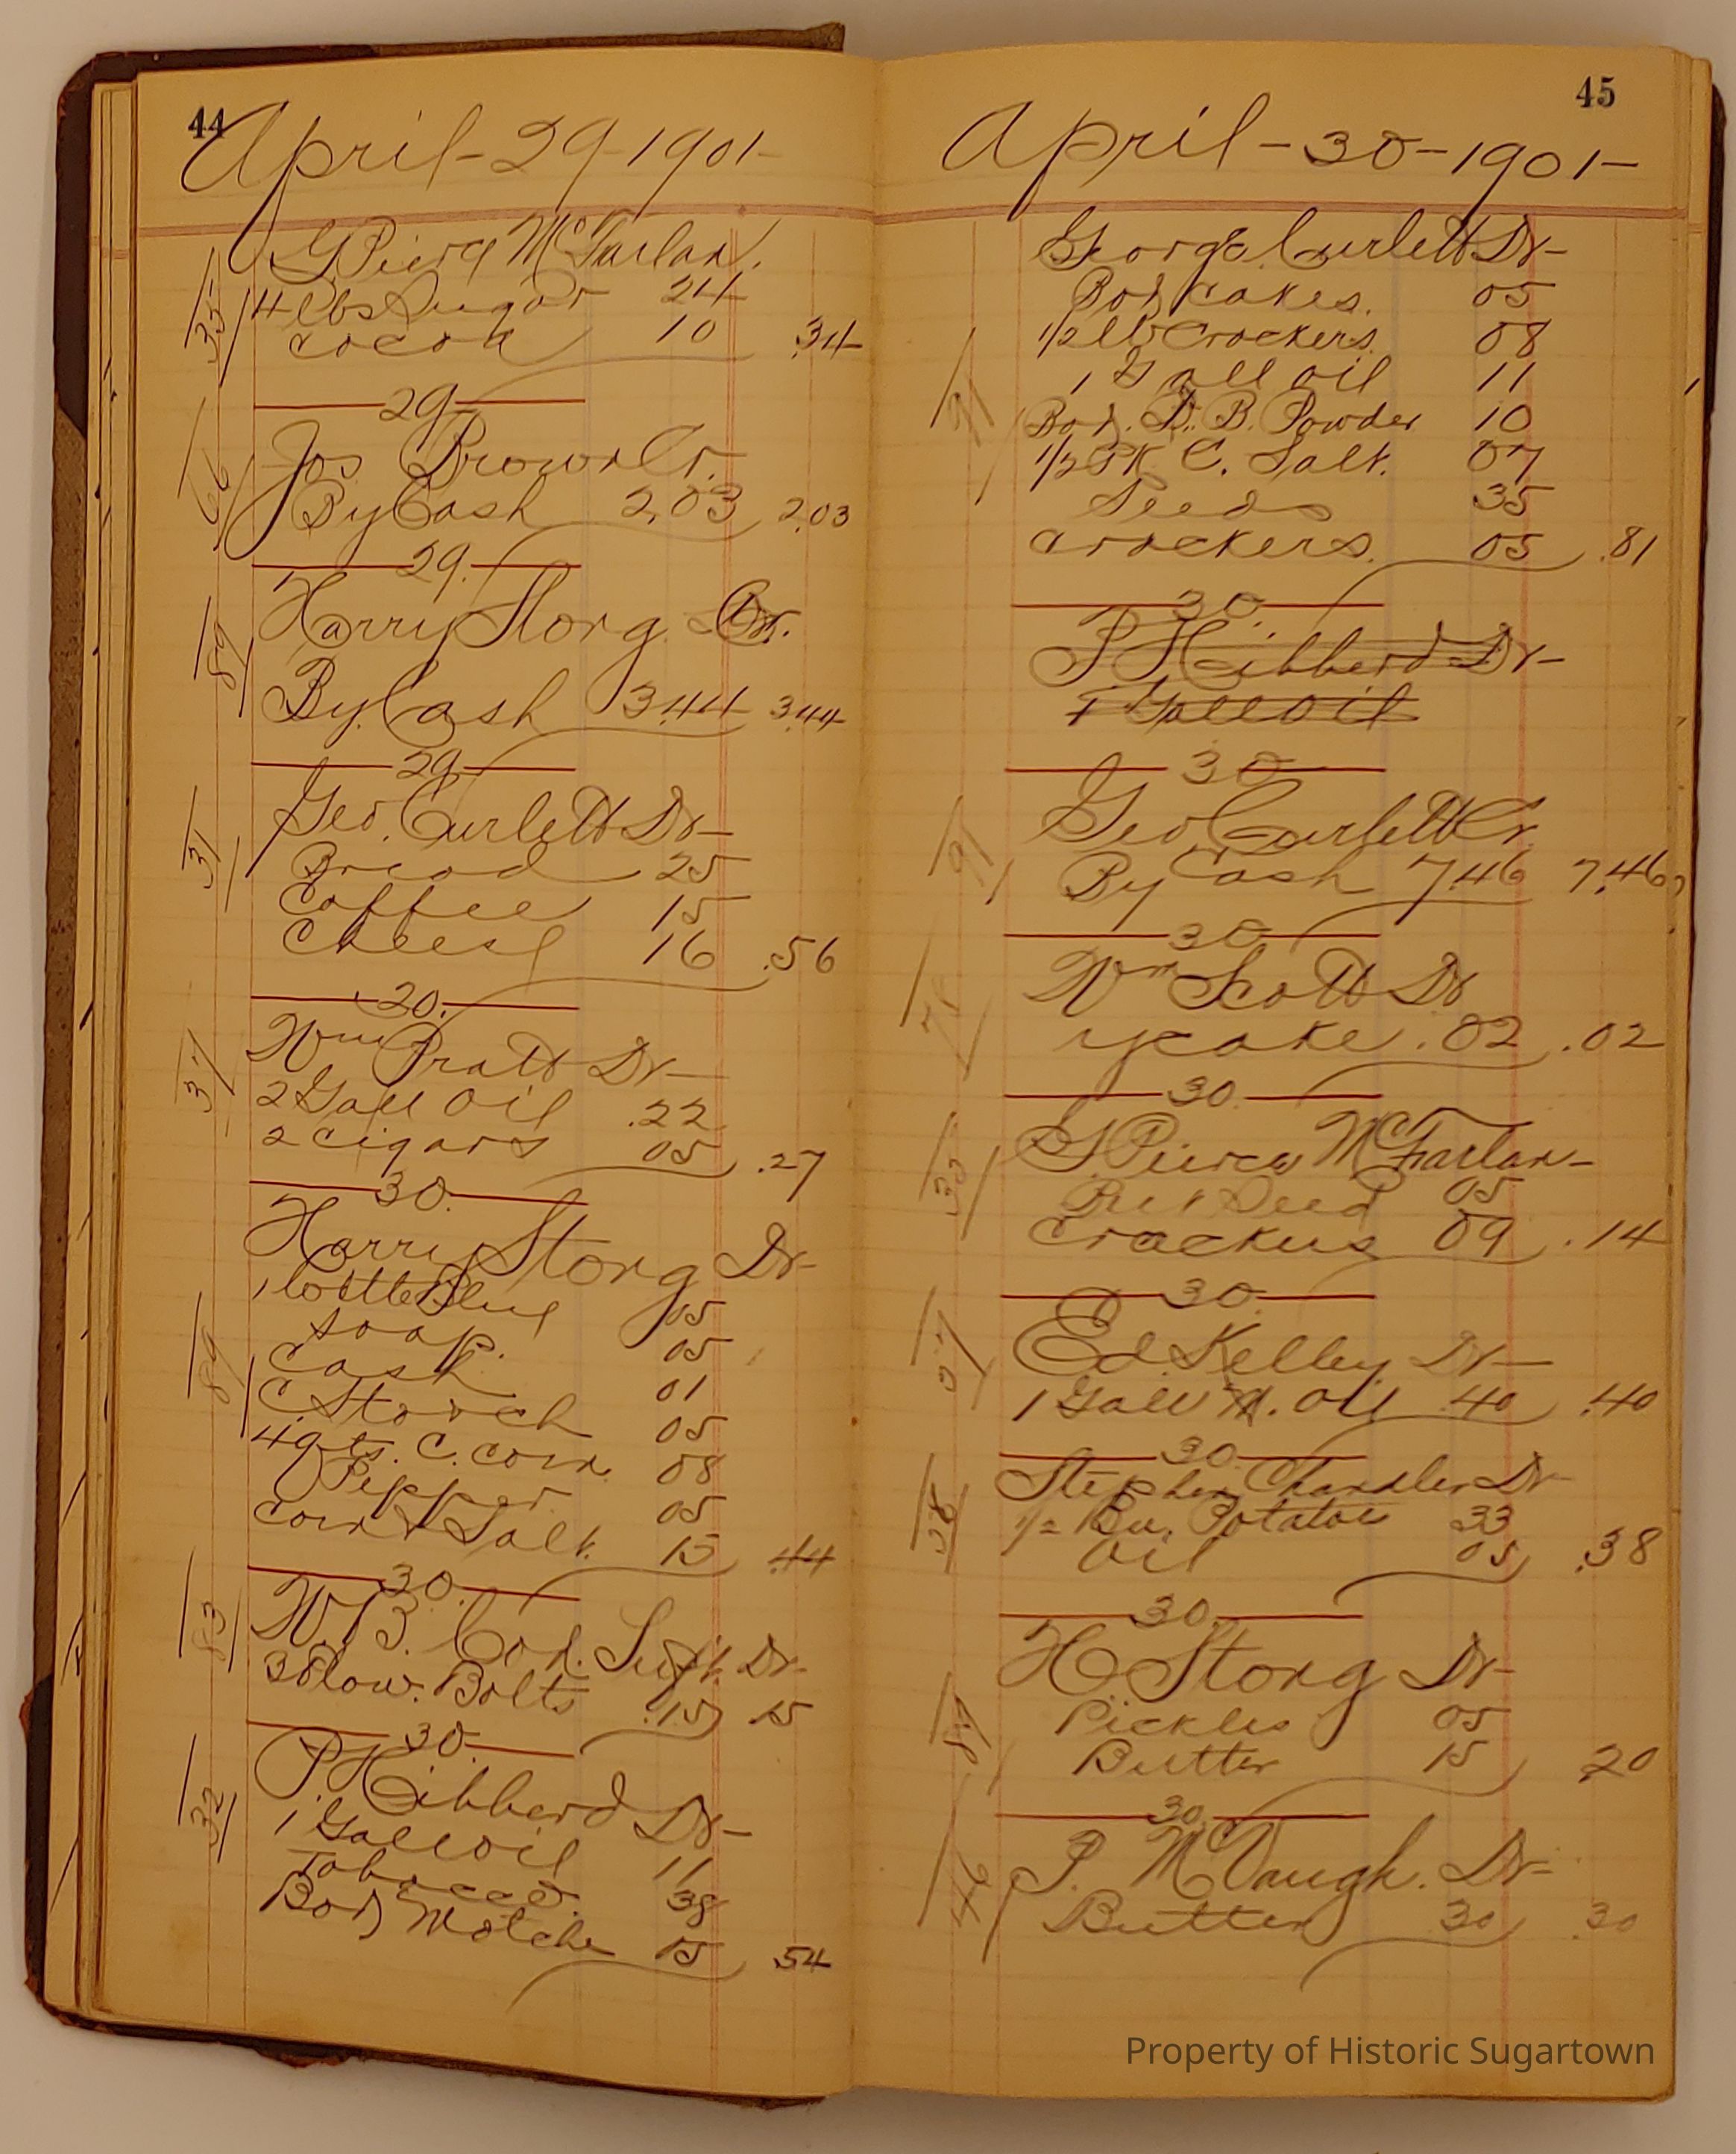 44
April-29-1901-
35
G Pierce McFarlan.
4 lbs Sugar 24
cocoa 10 .34
29
66
Jos Brown Cr.
By Cash 2,03 2.03
29.
89
Harry Storg Cr.
By Cash 3.44 3.44
29
31
Geo. Curlett Dr-
Bread 25
Coffee 15
Cheese 16 .56
20.
37
Wm Pratt Dr-
2 Gall Oil .22
2 cigars 05 .27
30.
89
Harry Storg Dr-
1 bottle Blue 05
Soap. 05
Cash 01
C. Starch 05
4 qts. C. corn 08
Pepper 05
corn & Salt. 15 .44
30.
83
W.B. Dr-
3 Plow. Bolts .15 15
30.
32
P Hibberd Dr-
1 Gall oil 11
Tobacco. 38
Box Matche 15 54
45
April-30-1901-
George Curlett Dr-
Box cakes. 05
1/2 lb Crackers. 08
1 Gall oil 11
Box. B. Powder 10
1/2 Pk C. Salt. 07
Seeds 35
crackers. 05 .81
30.
P Hibberd Dr-
1 Gall Oil
30
91
Geo Curlett Cr.
By Cash 7.46 7,46
30
Wm Scott Dr
ycake .02 .02
30.
G Pierce McFarlan-
Seed 05
Crackers 09 .14
30.
Ed. Kelley Dr-
1 Gall . Oil .40 .40
30.
38
Stephen Chandler Dr-
1/2 Bu. Potatoes 33
Oil 05 .38
30.
89
H Storg Dr-
Pickles 05
Butter 15 .20
30.
46
P. McVaugh. Dr-
Butter .30 .30
Property of Historic Sugartown